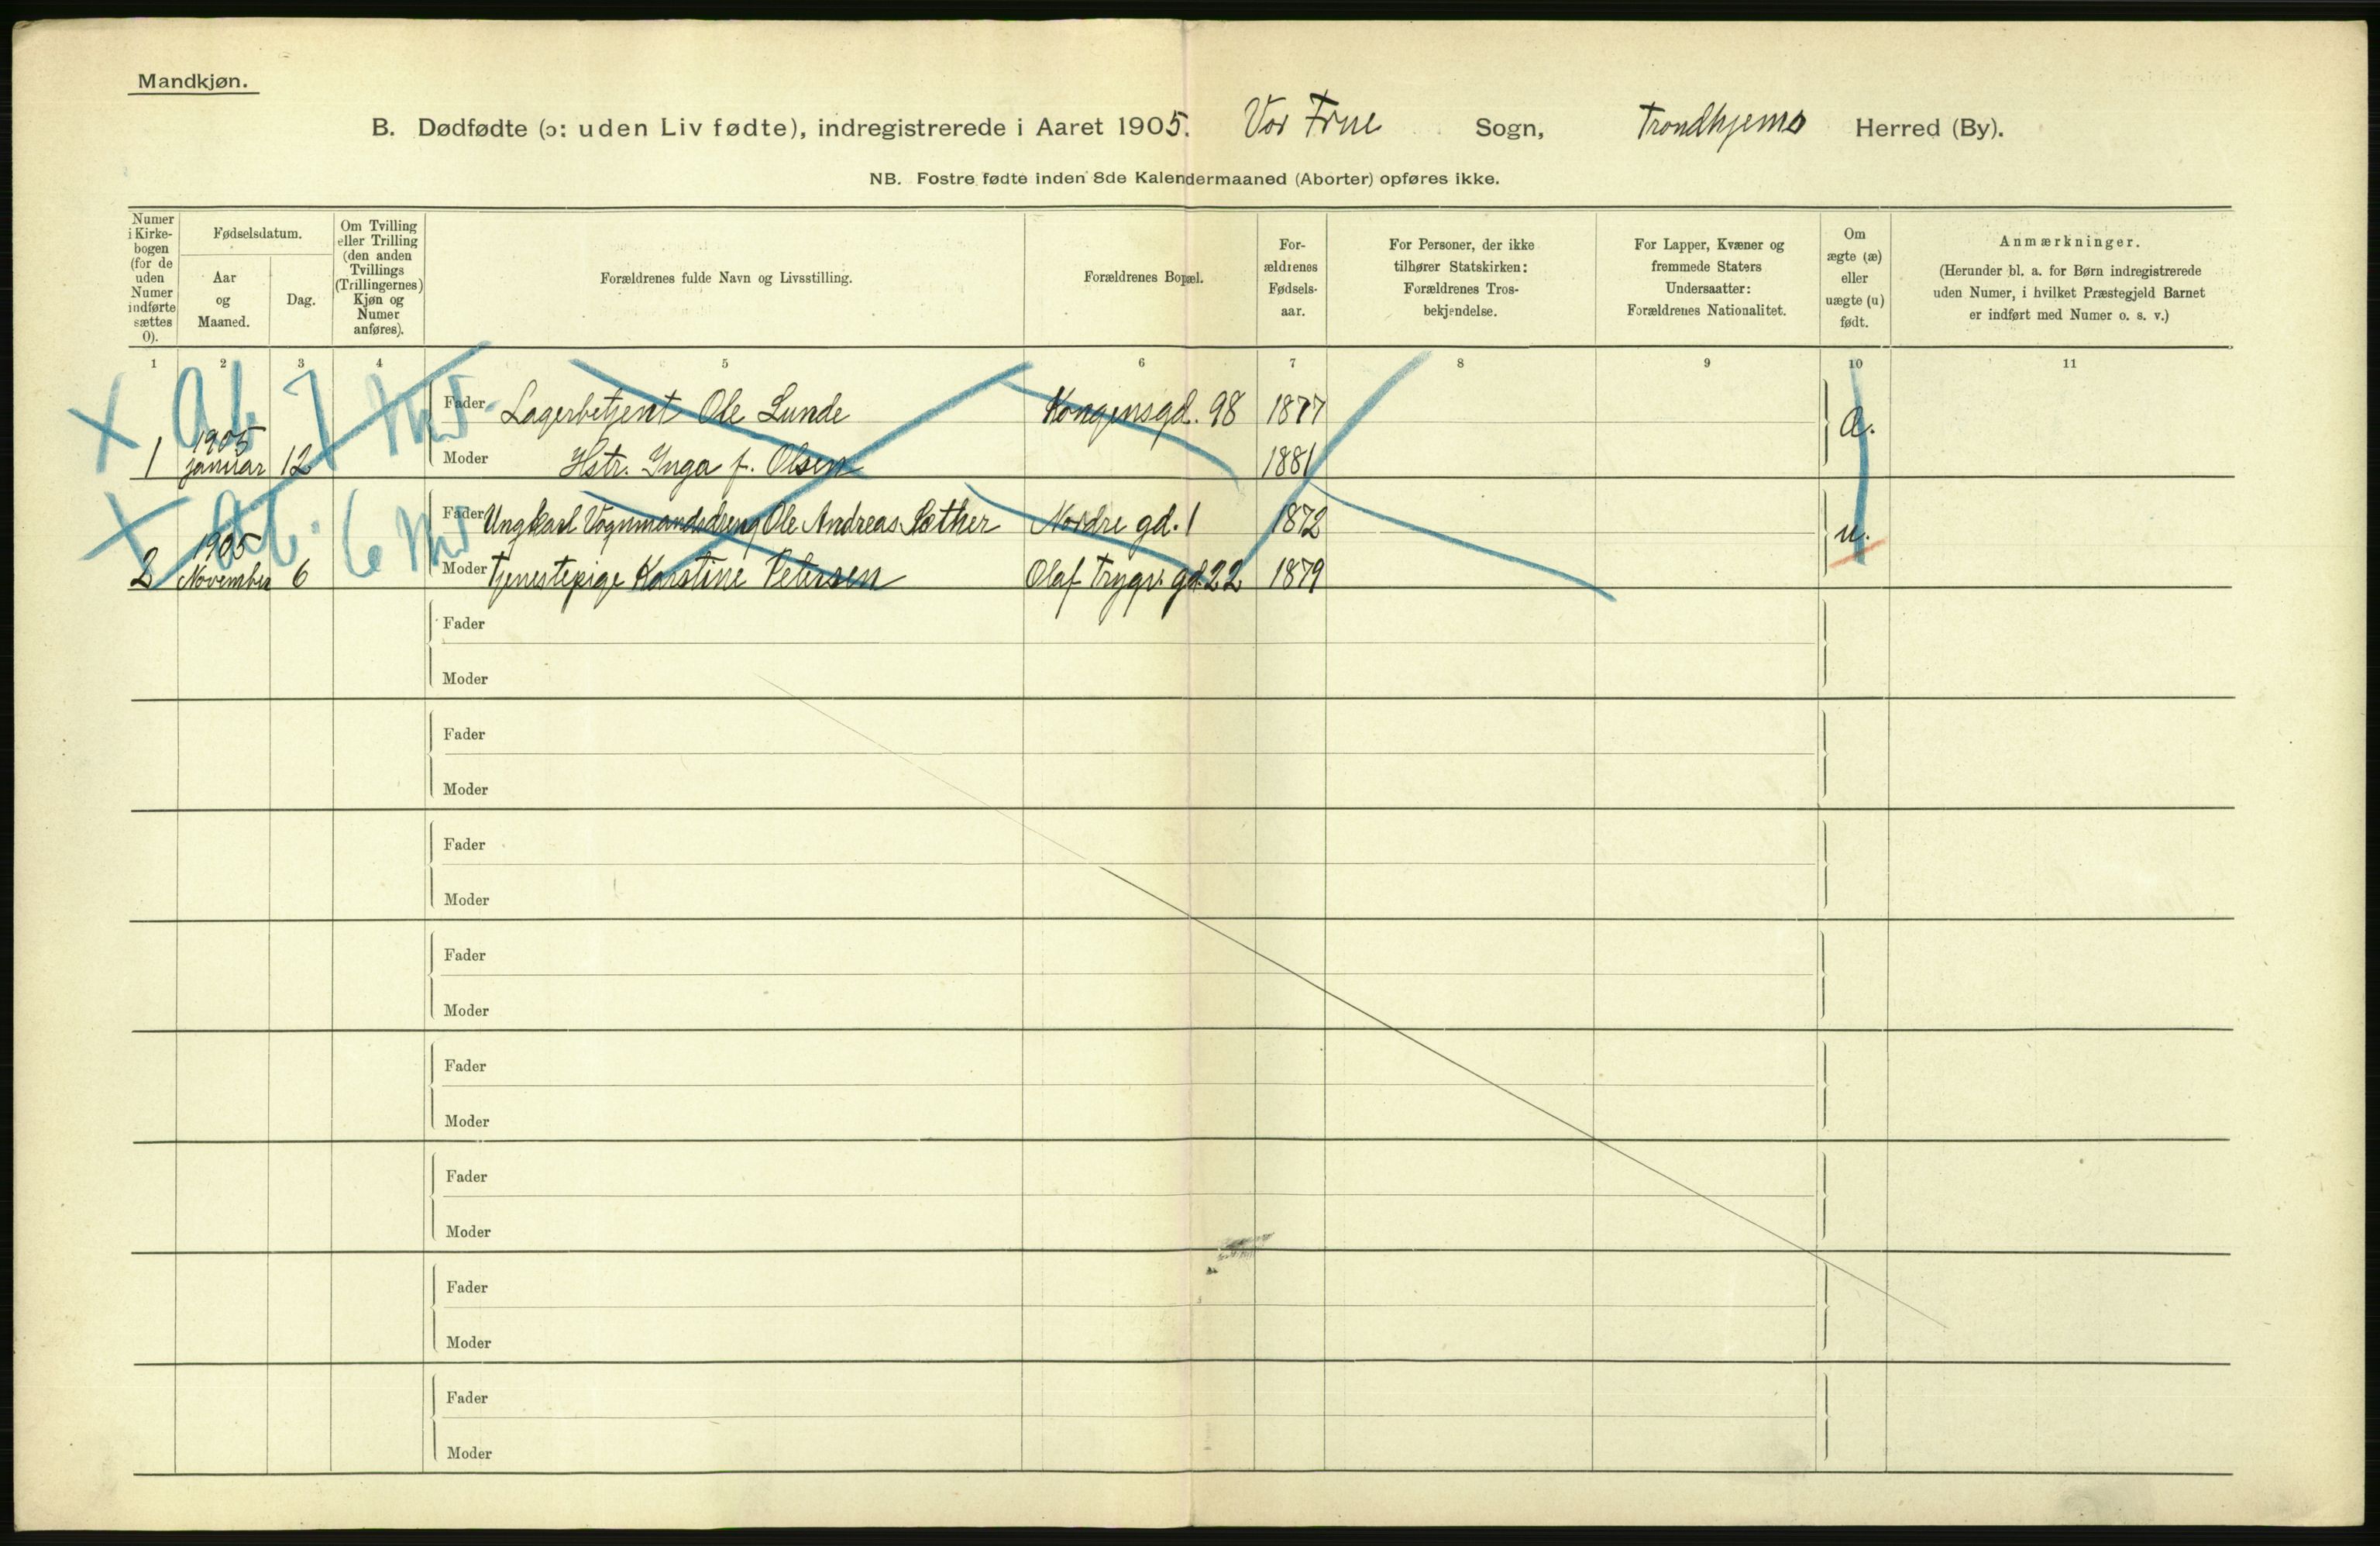 Mandkjøn.
B. Dødfødte (ɔ: uden Liv fødte), indregistrerede i Aaret 1905. Vor Frue Sogn, Trondhjems Herred (By).
NB. Fostre fødte inden 8de Kalendermaaned (Aborter) opføres ikke.
Numer i Kirke-bogen (for de uden Numer indførte sættes 0).
Fødselsdatum.
Aar og Maaned.
Dag.
Om Tvilling eller Trilling (den anden Tvillings (Trillingernes) Kjøn og Numer anføres).
Forældrenes fulde Navn og Livsstilling.
Forældrenes Bopæl.
For-ældrenes Fødsels-aar.
For Personer, der ikke tilhører Statskirken: Forældrenes Tros-bekjendelse.
For Lapper, Kvæner og fremmede Staters Undersaatter: Forældrenes Nationalitet.
Om ægte (æ) eller uægte (u) født.
Anmærkninger.
(Herunder bl. a. for Børn indregistrerede uden Numer, i hvilket Præstegjeld Barnet er indført med Numer o. s. v.)
1 2 3 4 5 6 7 8 9 10 11
Fader Lagerbetjent Ole Lunde Kongensgd. 98 1877
1 1905 januar 12 Moder Hstr. Inga f. Olsen 1881 æ.
Fader Ungkarl Vognmandsdreng Ole Andreas Sæther Nordre gd. 1 1872
2 1905 November 6 Moder Tjenestepige Karstine Petersen Olaf Trygv. gd. 22 1879 u.
Fader
Moder
Fader
Moder
Fader
Moder
Fader
Moder
Fader
Moder
Fader
Moder
Fader
Moder
Fader
Moder